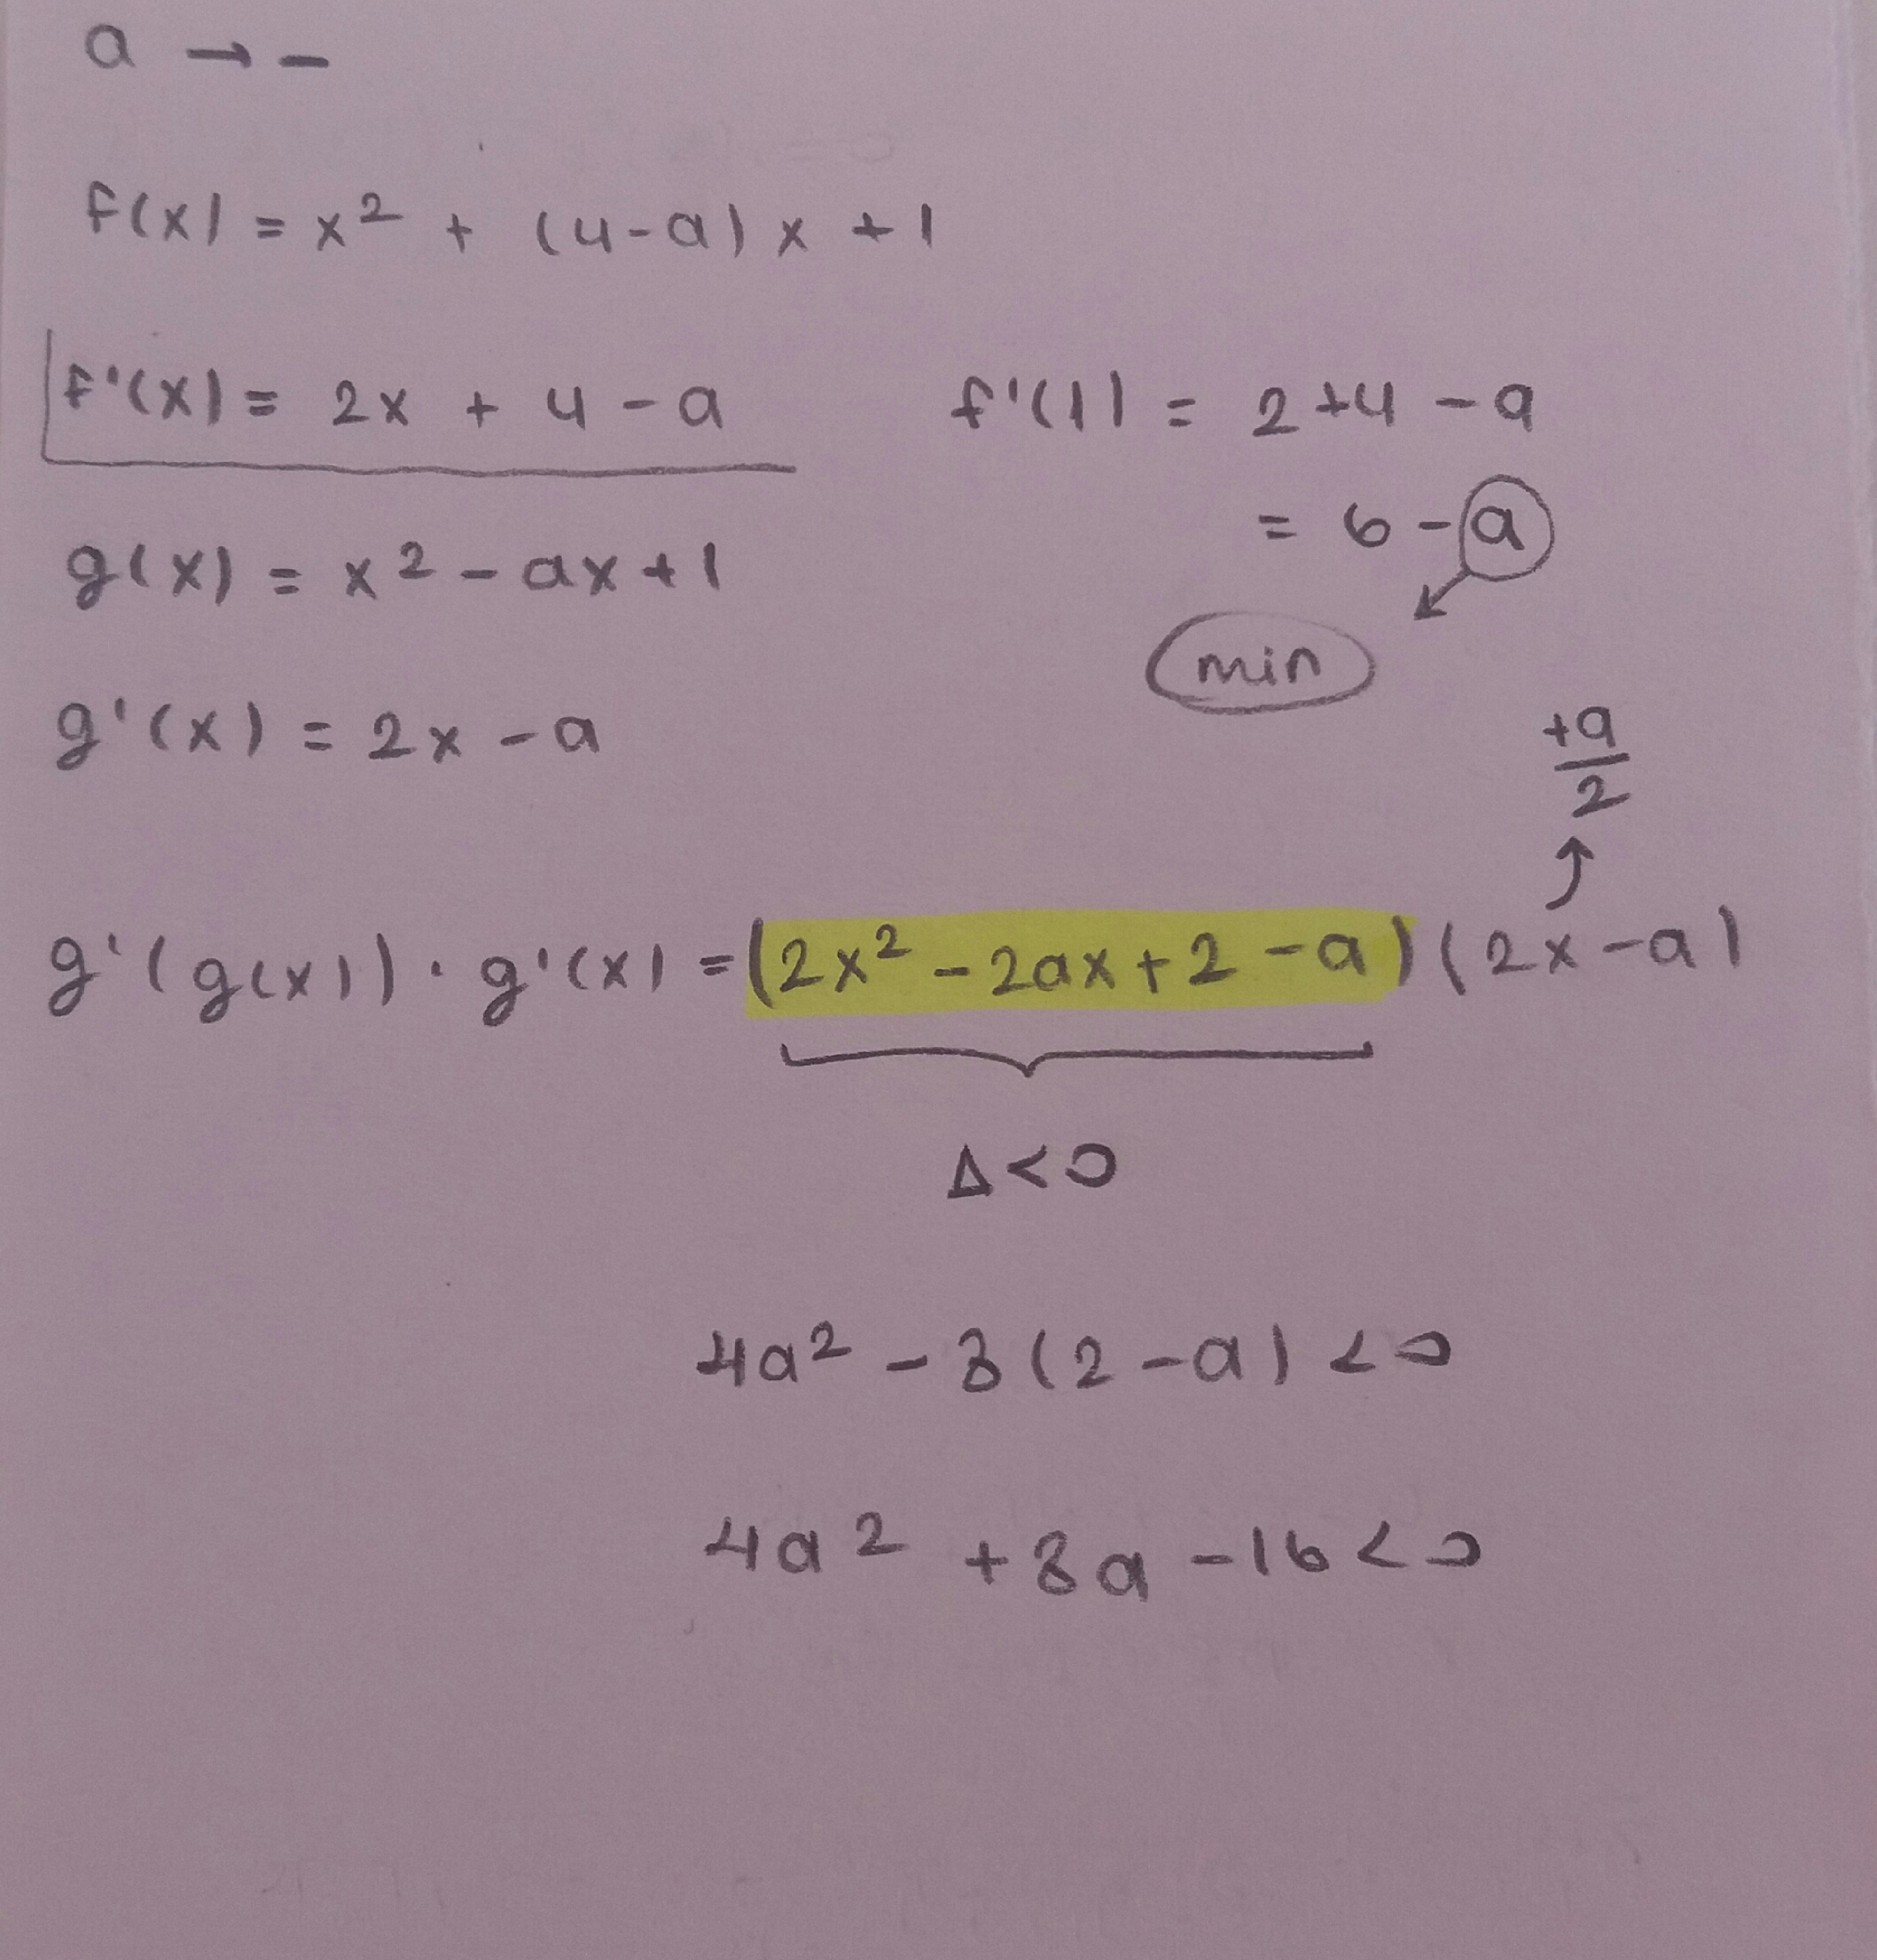 a → -
f(x) = x² + (4-a)x + 1
f'(x) = 2x + 4 - a
f'(1) = 2+4 - a
= 6 - a
min
g(x) = x² - ax + 1
g'(x) = 2x - a
+a/2
g'(g(x)) · g'(x) = (2x² - 2ax + 2 - a)(2x - a)
Δ < 0
4a² - 8(2 - a) < 0
4a² + 8a - 16 < 0